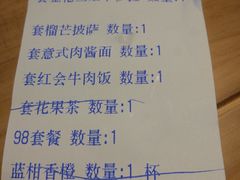 套榴芒披萨 数量:1
套意式肉酱面 数量:1
套红会牛肉饭 数量:1
套花果茶 数量:1
98套餐 数量:1
蓝柑香橙 数量:1 杯